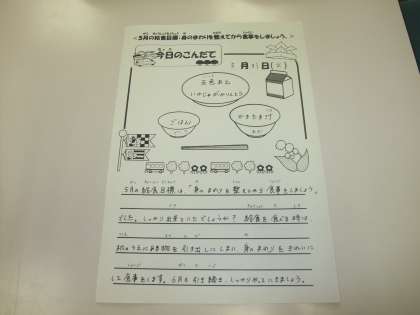 5月の給食目標:身のまわりを整えてから食事をしましょう。
今日のこんだて
5月31日(火)
五色あえ
いかじゃがかりんとう
ごはん
かきたま汁
5月の給食目標は、「身のまわりを整えてから食事をしましょう。」
でした。しっかり出来ていたでしょうか? 給食を食べる時は、
机の上の
身のまわりをきれいに
して食事をします。6月も引き続き、しっかりやっていきましょう。